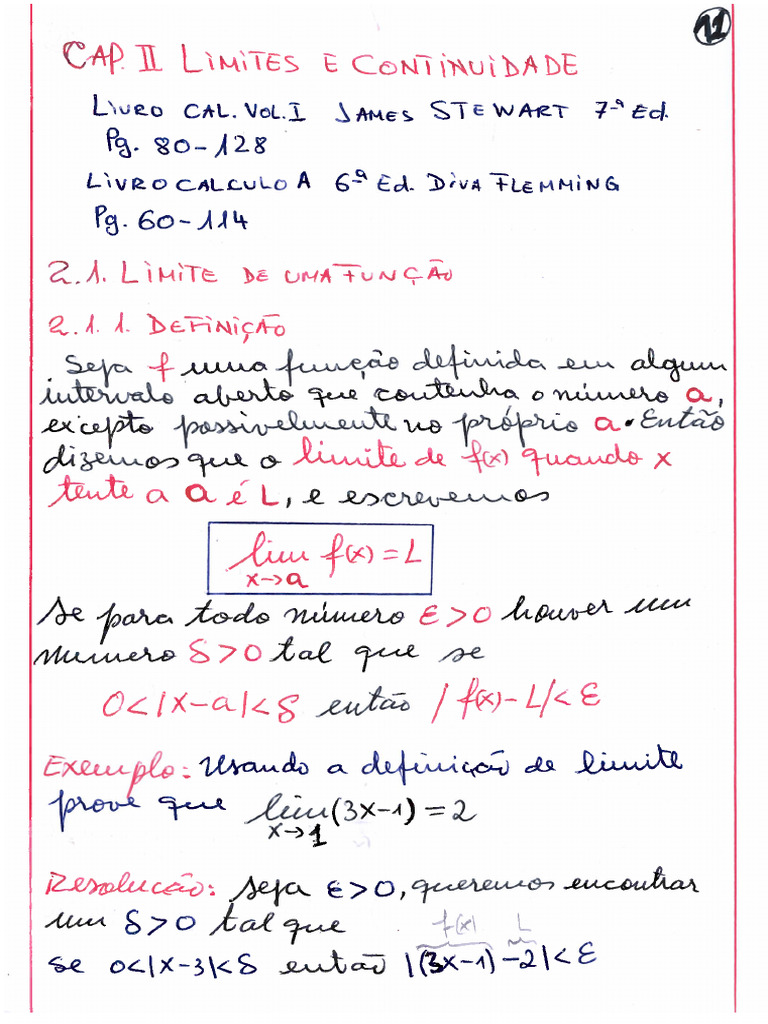 11
CAP. II LIMITES E CONTINUIDADE
LIVRO CAL. VOL. I JAMES STEWART 7ª Ed.
Pg. 80-128
LIVRO CALCULO A 6ª Ed. DIVA FLEMMING
Pg. 60-114
2.1. LIMITE DE UMA FUNÇÃO
2.1.1. DEFINIÇÃO
Seja f uma função definida em algum
intervalo aberto que contenha o número a,
excepto possivelmente no próprio a. Então
dizemos que o limite de f(x) quando x
tente a a é L, e escrevemos
lim f(x) = L
x→a
Se para todo número ε>0 houver um
numero δ>0 tal que se
0<|x-a|<δ então |f(x)-L|<ε
Exemplo: Usando a definição de limite
prove que lim (3x-1) = 2
x→1
Resolucão: Seja ε>0, queremos encontrar
um δ>0 tal que f(x) L
se 0<|x-3|<δ então |(3x-1)-2|<ε